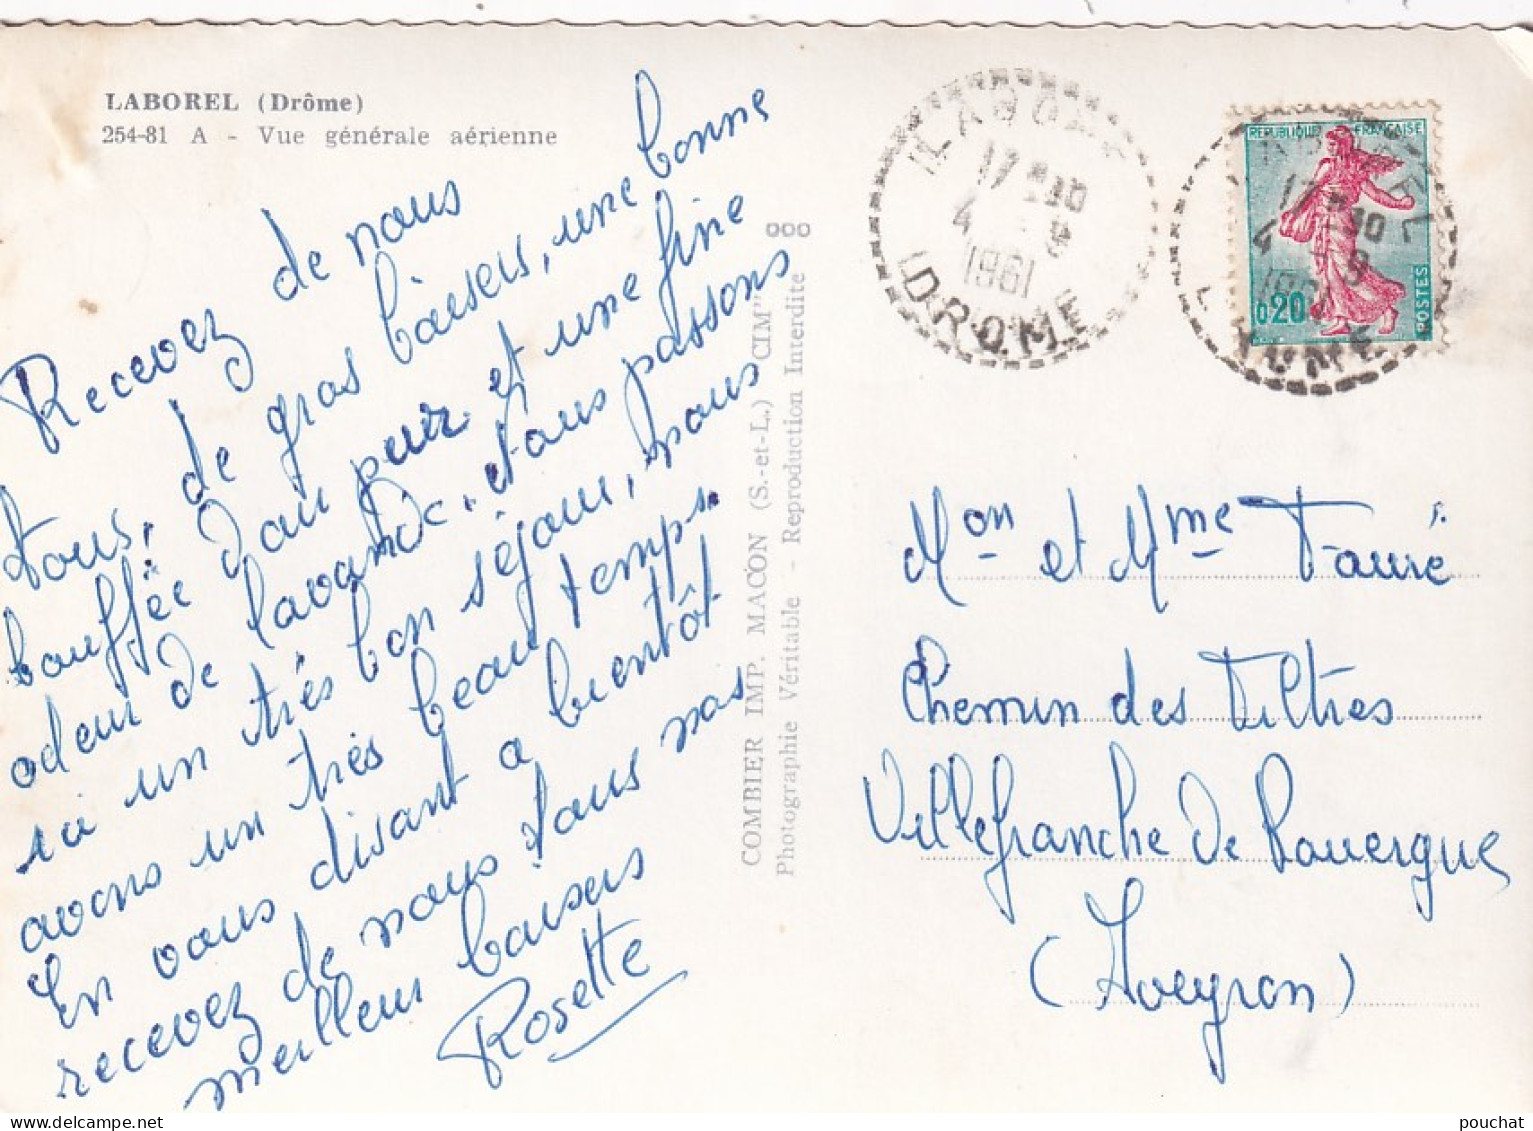 LABOREL (Drôme)
254-81 A - Vue générale aérienne
Recevez de nous
tous, de gros baisers, une bonne
bouffée d'air pur et une fine
odeur de lavande. Nous passons
ici un très bon séjour, nous
avons un très beau temps.
En vous disant a bientôt
recevez de nous tous nos
meilleurs baisers
Rosette
COMBIER IMP. MACON (S.-et-L.) "CIM"
Photographie Véritable - Reproduction Interdite
17 H 30
4 - 9
1961
DROME
REPUBLIQUE FRANÇAISE
0,20
POSTES
17 H 30
4 - 9
Mon et Mme Fauré
Chemin des Filtres
Villefranche de Rouergue
(Aveyron)
pouchat